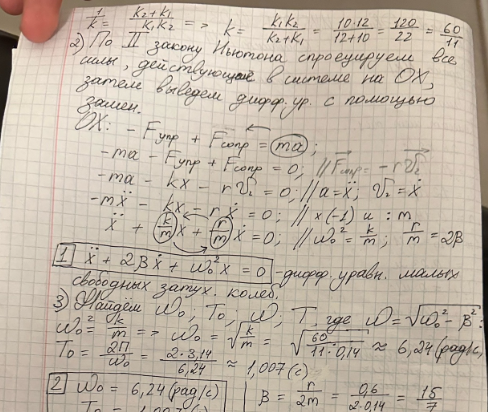 1/k = (k₂+k₁)/(k₁k₂) => k = (k₁k₂)/(k₂+k₁) = (10·12)/(12+10) = 120/22 = 60/11
2) По II закону Ньютона спроецируем все
силы, действующие в системе на OX,
затем выведем дифф.ур. с помощью
замен.
OX: -Fупр + Fсопр = ma;
-ma - Fупр + Fсопр = 0; // F⃗сопр = -rV⃗₂
-ma - kx - rV₂ = 0; // a=ẍ; V₂=ẋ
-mẍ - kx - rẋ = 0; // x(-1) и : m
ẍ + (k/m)x + (r/m)ẋ = 0; // ω₀² = k/m; r/m = 2β
1 ẍ + 2βẋ + ω₀²x = 0 - дифф. уравн. малых
свободных затух. колеб.
3) Найдём ω₀, T₀, ω, T, где ω = √(ω₀² - β²):
ω₀² = k/m => ω₀ = √(k/m) = √(60/(11·0,14)) ≈ 6,24 (рад/с)
T₀ = 2П/ω₀ = (2·3,14)/6,24 ≈ 1,007 (с)
2 ω₀ = 6,24 (рад/с) | β = r/2m = 0,6/(2·0,14) = 15/7